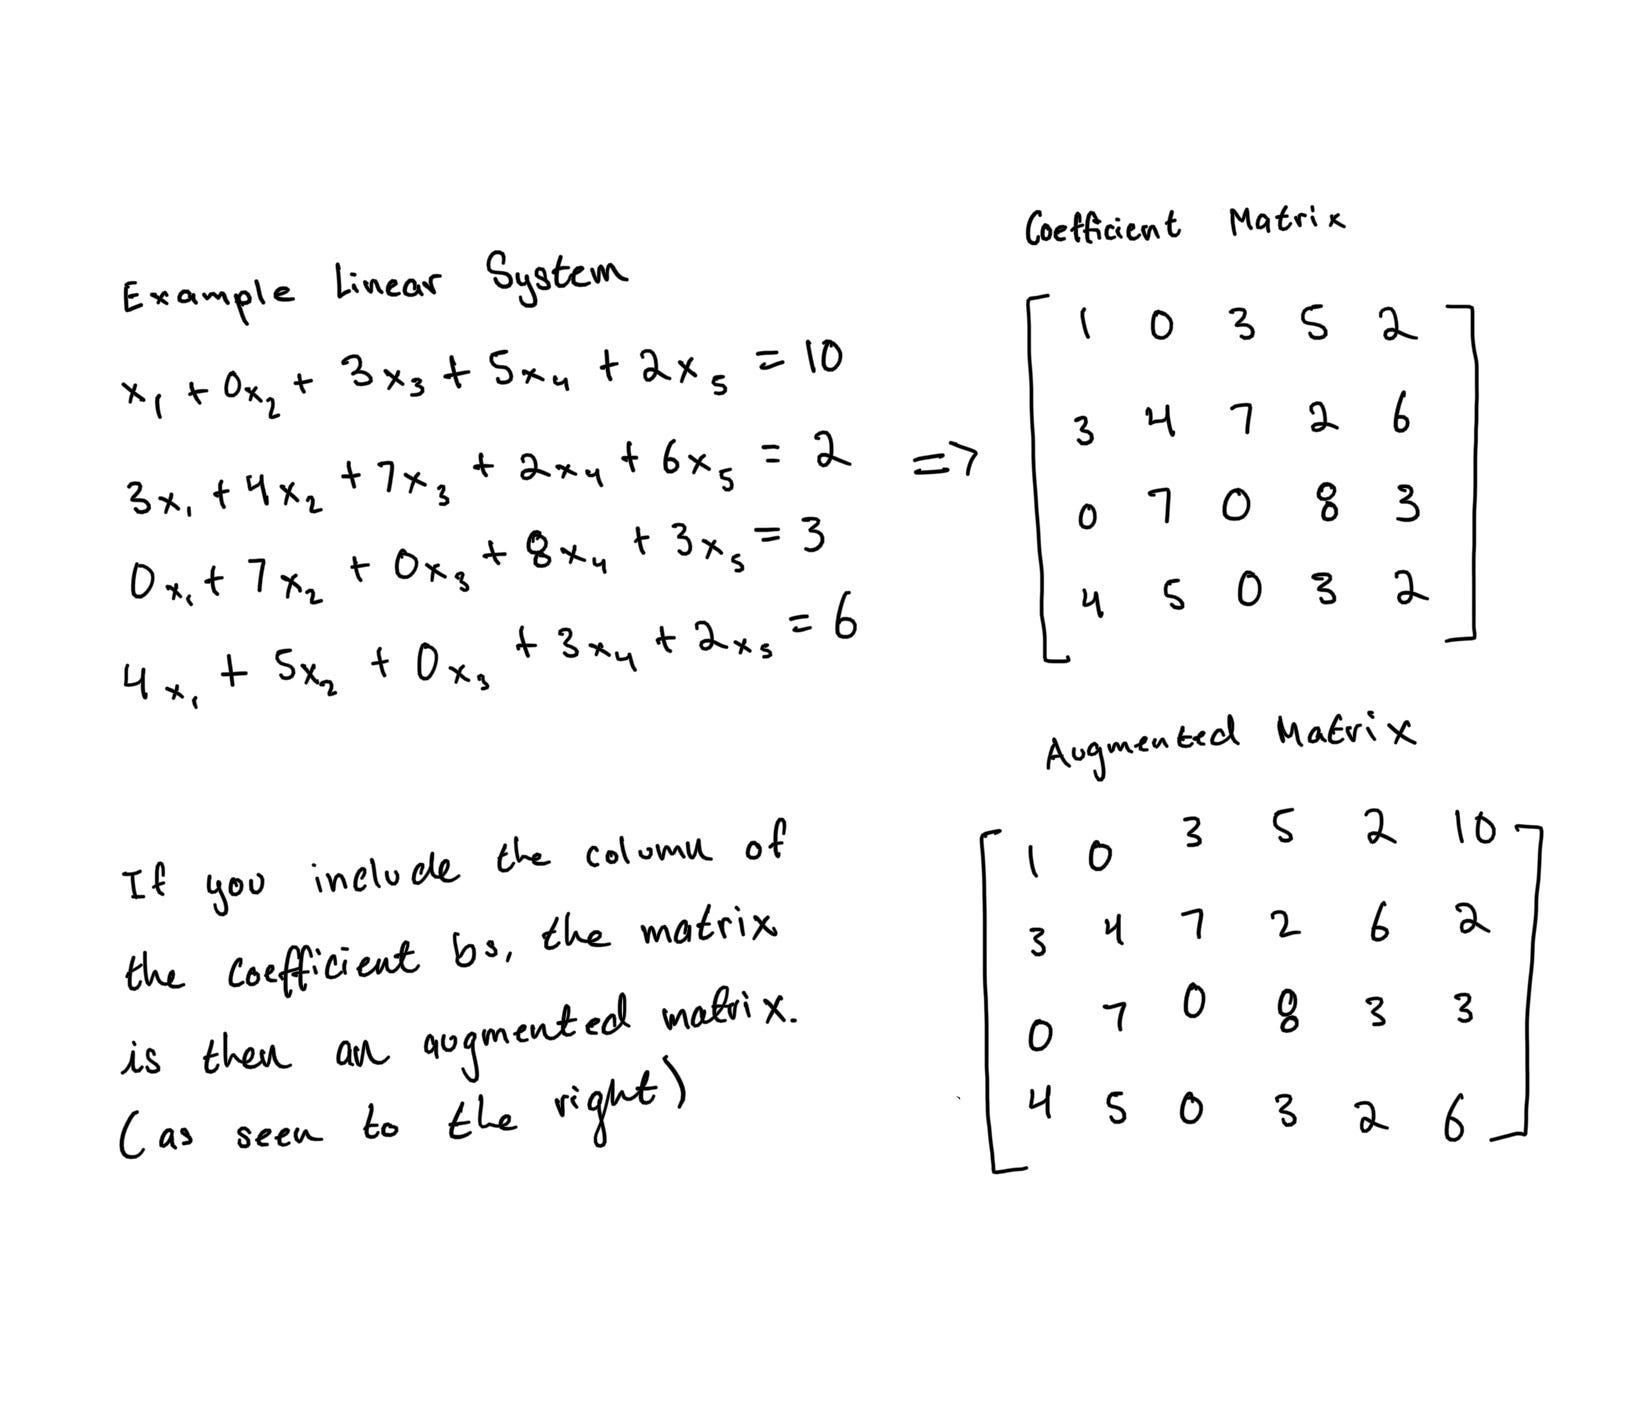 Example Linear System
x₁ + 0x₂ + 3x₃ + 5x₄ + 2x₅ = 10
3x₁ + 4x₂ + 7x₃ + 2x₄ + 6x₅ = 2
0x₁ + 7x₂ + 0x₃ + 8x₄ + 3x₅ = 3
4x₁ + 5x₂ + 0x₃ + 3x₄ + 2x₅ = 6
=>
Coefficient Matrix
1 0 3 5 2
3 4 7 2 6
0 7 0 8 3
4 5 0 3 2
If you include the column of
the coefficient bs, the matrix
is then an augmented matrix.
(as seen to the right)
Augmented Matrix
1 0 3 5 2 10
3 4 7 2 6 2
0 7 0 8 3 3
4 5 0 3 2 6